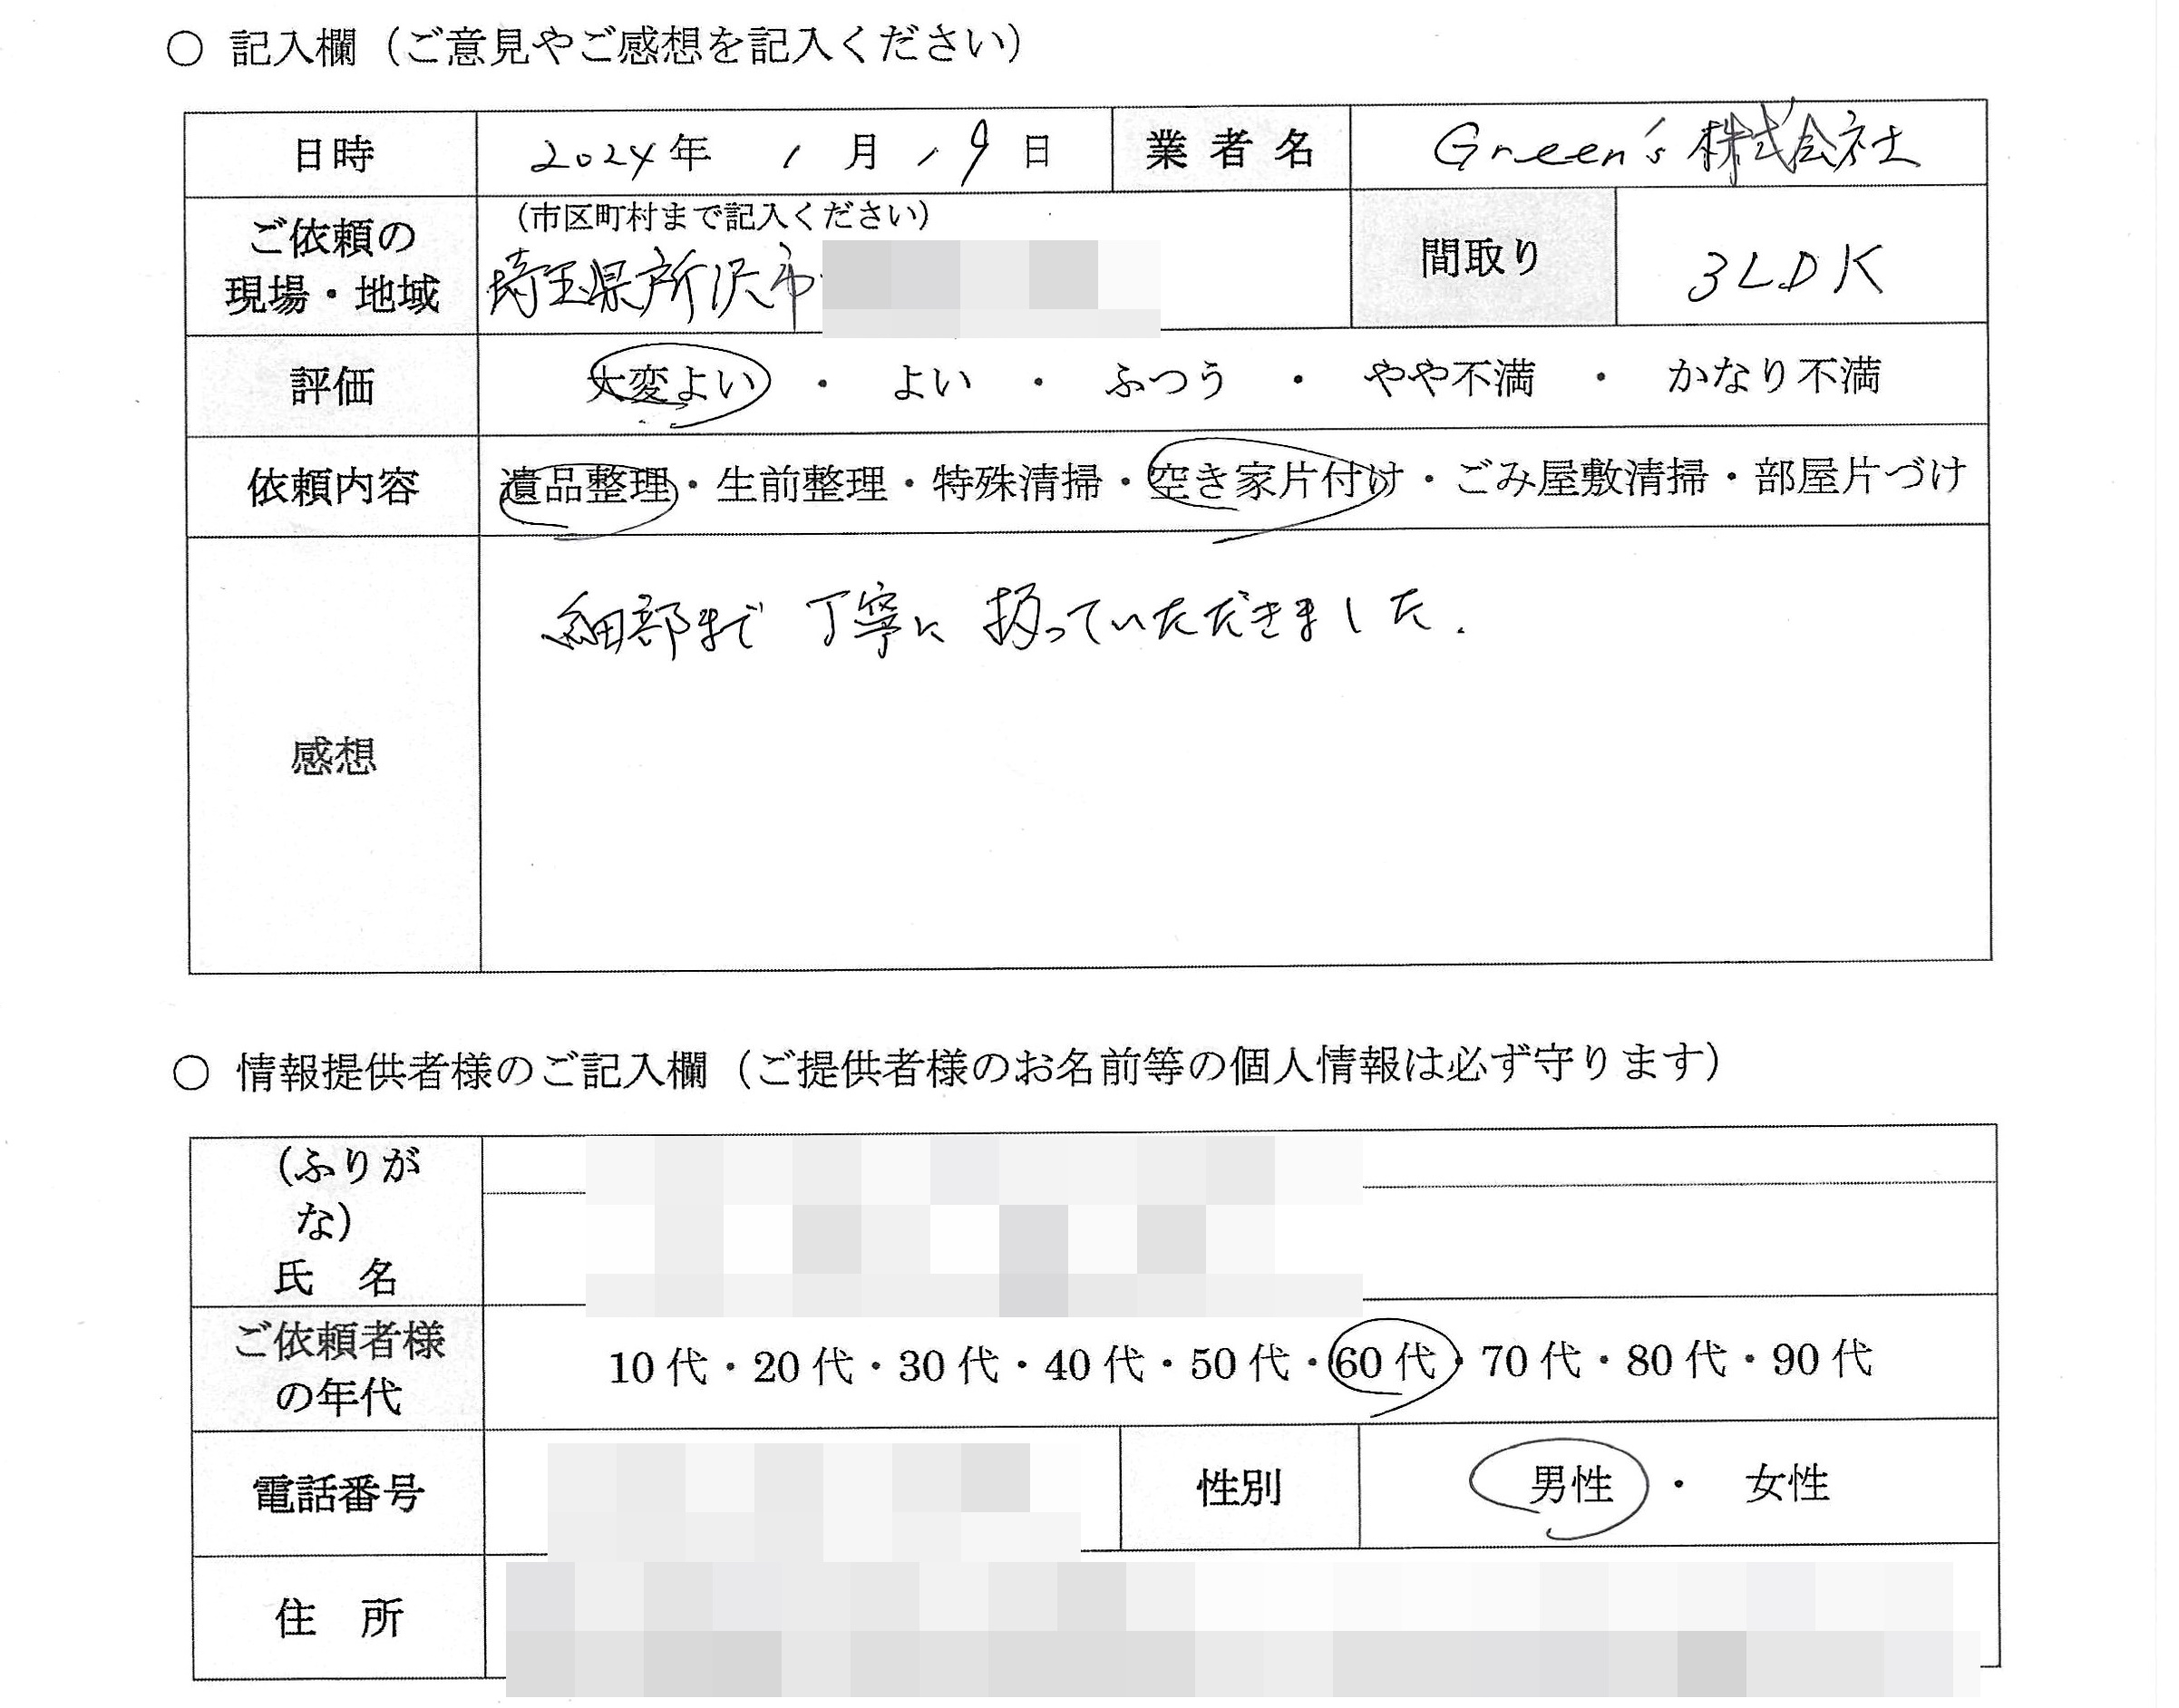 ○ 記入欄（ご意見やご感想を記入ください）
日時 2024年 1月 19日 業者名 Green's 株式会社
ご依頼の現場・地域 （市区町村まで記入ください） 間取り 3LDK
埼玉県所沢市
評価 大変よい ・ よい ・ ふつう ・ やや不満 ・ かなり不満
依頼内容 遺品整理・生前整理・特殊清掃・空き家片付け・ごみ屋敷清掃・部屋片づけ
感想 細部まで 丁寧に 扱っていただきました.
○ 情報提供者様のご記入欄（ご提供者様のお名前等の個人情報は必ず守ります）
（ふりが
な）
氏 名
ご依頼者様
の年代 10代・20代・30代・40代・50代・60代・70代・80代・90代
電話番号 性別 男性 ・ 女性
住 所